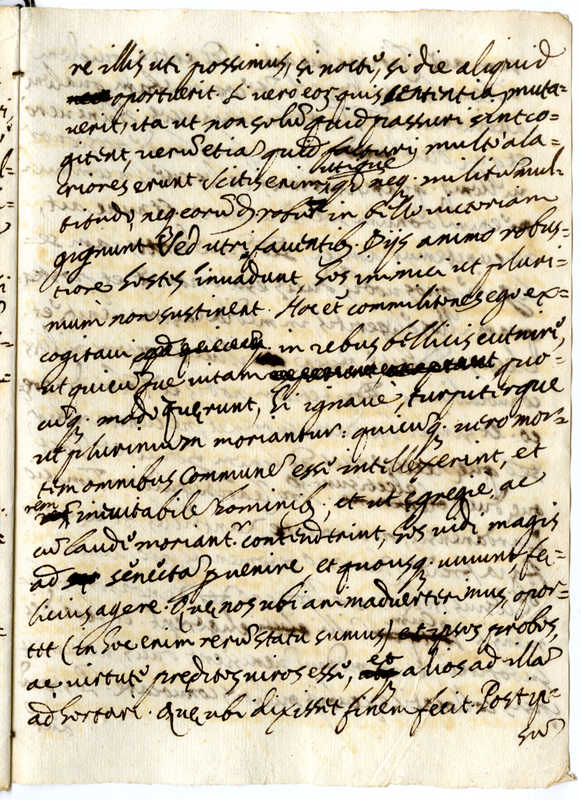 re illis uti possimus, si noctu, si die aliquid
oportuerit. Si vero eos quis sententia muta-
verit, ita ut non solũ quid passuri sint co-
gitent, verũ etiã quid facturi, multo ala-
criores erunt. Scitis enim utique neq. militũ mul-
titudo, neq. eorũ robur in bello victoriam
gignunt. Sed utri faventib. Dijs animo robus-
tiore hostes invadunt, hos inimici ut pluri-
mum non sustinent. Hoc et commilitones ego ex-
cogitavi in rebus bellicis
ut quicũque vitam quo-
cũq. modo querunt, hi ignave, turpiterque
ut plurimum moriantur: quicuq. vero mor-
tem omnibus commune esse intellexerint, et
rem inevitabile hominib., et ut egregie, ac
cũ laude moriant. contenderint, hos vidi magis
ad senecta pvenire et quousq. vivunt fe-
licius agere. Que nos ubi animadverterimus, opor-
tet (in hoc enim rerũ statu sumus) probos,
ac virtute preditos viros esse, et alios ad illa
adhortari. Que ubi dixisset finem fecit. Post ip-
sũ